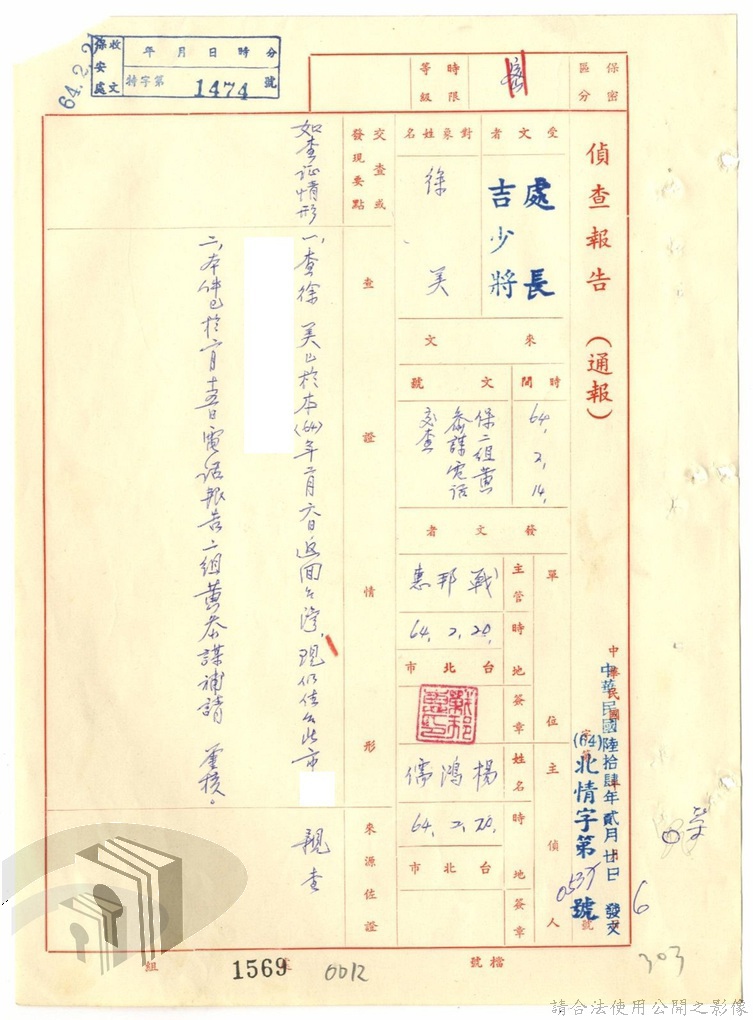 偵查報告 (通報)
中華民國陸拾肆年貳月廿日 發文
(64)北情字第 號
收文 保安處
年 月 日 時 分
特字第 1474 號
64.2.2
保密區分
密
時限等級
受文者
處長
吉少將
對象姓名
徐 美
來文
時間
64.2.14.
文號
保二組黃
參謀電話
交查
發文者
單位
主管
戰邦惠
時
64.2.20.
地
台北市
簽章
主偵人
姓名
楊鴻儒
時
64.2.20.
地
台北市
簽章
交查或發現要點
如查証情形
查證情形
一、查徐 美已於本(64)年二月六日返回台灣，現仍住台北市
二、本件已於二月十五日電話報告二組黃參謀補請 鑒核。
來源佐證
親查
檔號
案
組
1569
0012
303
6
請合法使用公開之影像